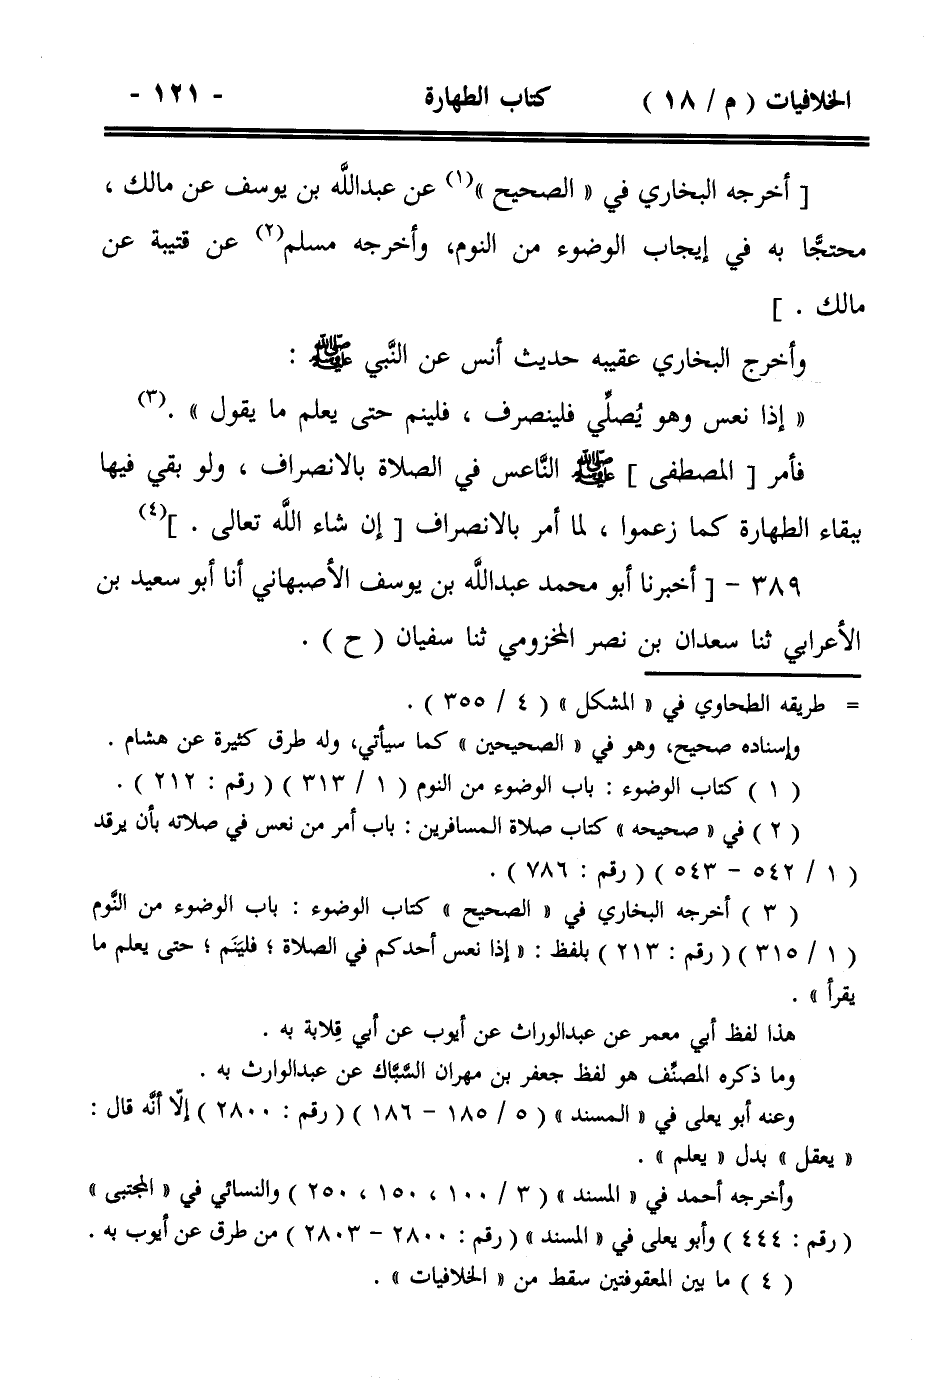 الخلافيات ( م / ١٨ ) كتاب الطهارة - ١٢١ -
[ أخرجه البخاري في « الصحيح »(١) عن عبدالله بن يوسف عن مالك ،
محتجًّا به في إيجاب الوضوء من النوم، وأخرجه مسلم(٢) عن قتيبة عن
مالك . ]
وأخرج البخاري عقيبه حديث أنس عن النَّبي ﷺ :
« إذا نعس وهو يُصلِّي فلينصرف ، فلينم حتى يعلم ما يقول » .(٣)
فأمر [ المصطفى ] ﷺ النَّاعس في الصلاة بالانصراف ، ولو بقي فيها
ببقاء الطهارة كما زعموا ، لما أمر بالانصراف [ إن شاء الله تعالى . ](٤)
٣٨٩ - [ أخبرنا أبو محمد عبدالله بن يوسف الأصبهاني أنا أبو سعيد بن
الأعرابي ثنا سعدان بن نصر المخزومي ثنا سفيان ( ح ) .
= طريقه الطحاوي في « المشكل » ( ٤ / ٣٥٥ ) .
وإسناده صحيح، وهو في « الصحيحين » كما سيأتي، وله طرق كثيرة عن هشام .
( ١ ) كتاب الوضوء : باب الوضوء من النوم ( ١ / ٣١٣ ) ( رقم : ٢١٢ ) .
( ٢ ) في « صحيحه » كتاب صلاة المسافرين : باب أمر من نعس في صلاته بأن يرقد
( ١ / ٥٤٢ - ٥٤٣ ) ( رقم : ٧٨٦ ) .
( ٣ ) أخرجه البخاري في « الصحيح » كتاب الوضوء : باب الوضوء من النَّوم
( ١ / ٣١٥ ) ( رقم : ٢١٣ ) بلفظ : « إذا نعس أحدكم في الصلاة ؛ فليَنَم ؛ حتى يعلم ما
يقرأ » .
هذا لفظ أبي معمر عن عبدالوراث عن أيوب عن أبي قِلابة به .
وما ذكره المصنِّف هو لفظ جعفر بن مهران السَّبَّاك عن عبدالوارث به .
وعنه أبو يعلى في « المسند » ( ٥ / ١٨٥ - ١٨٦ ) ( رقم : ٢٨٠٠ ) إلّا أنَّه قال :
« يعقل » بدل « يعلم » .
وأخرجه أحمد في « المسند » ( ٣ / ١٠٠ ، ١٥٠ ، ٢٥٠ ) والنسائي في « المجتبى »
( رقم : ٤٤٤ ) وأبو يعلى في « المسند » ( رقم : ٢٨٠٠ - ٢٨٠٣ ) من طرق عن أيوب به .
( ٤ ) ما بين المعقوفتين سقط من « الخلافيات » .